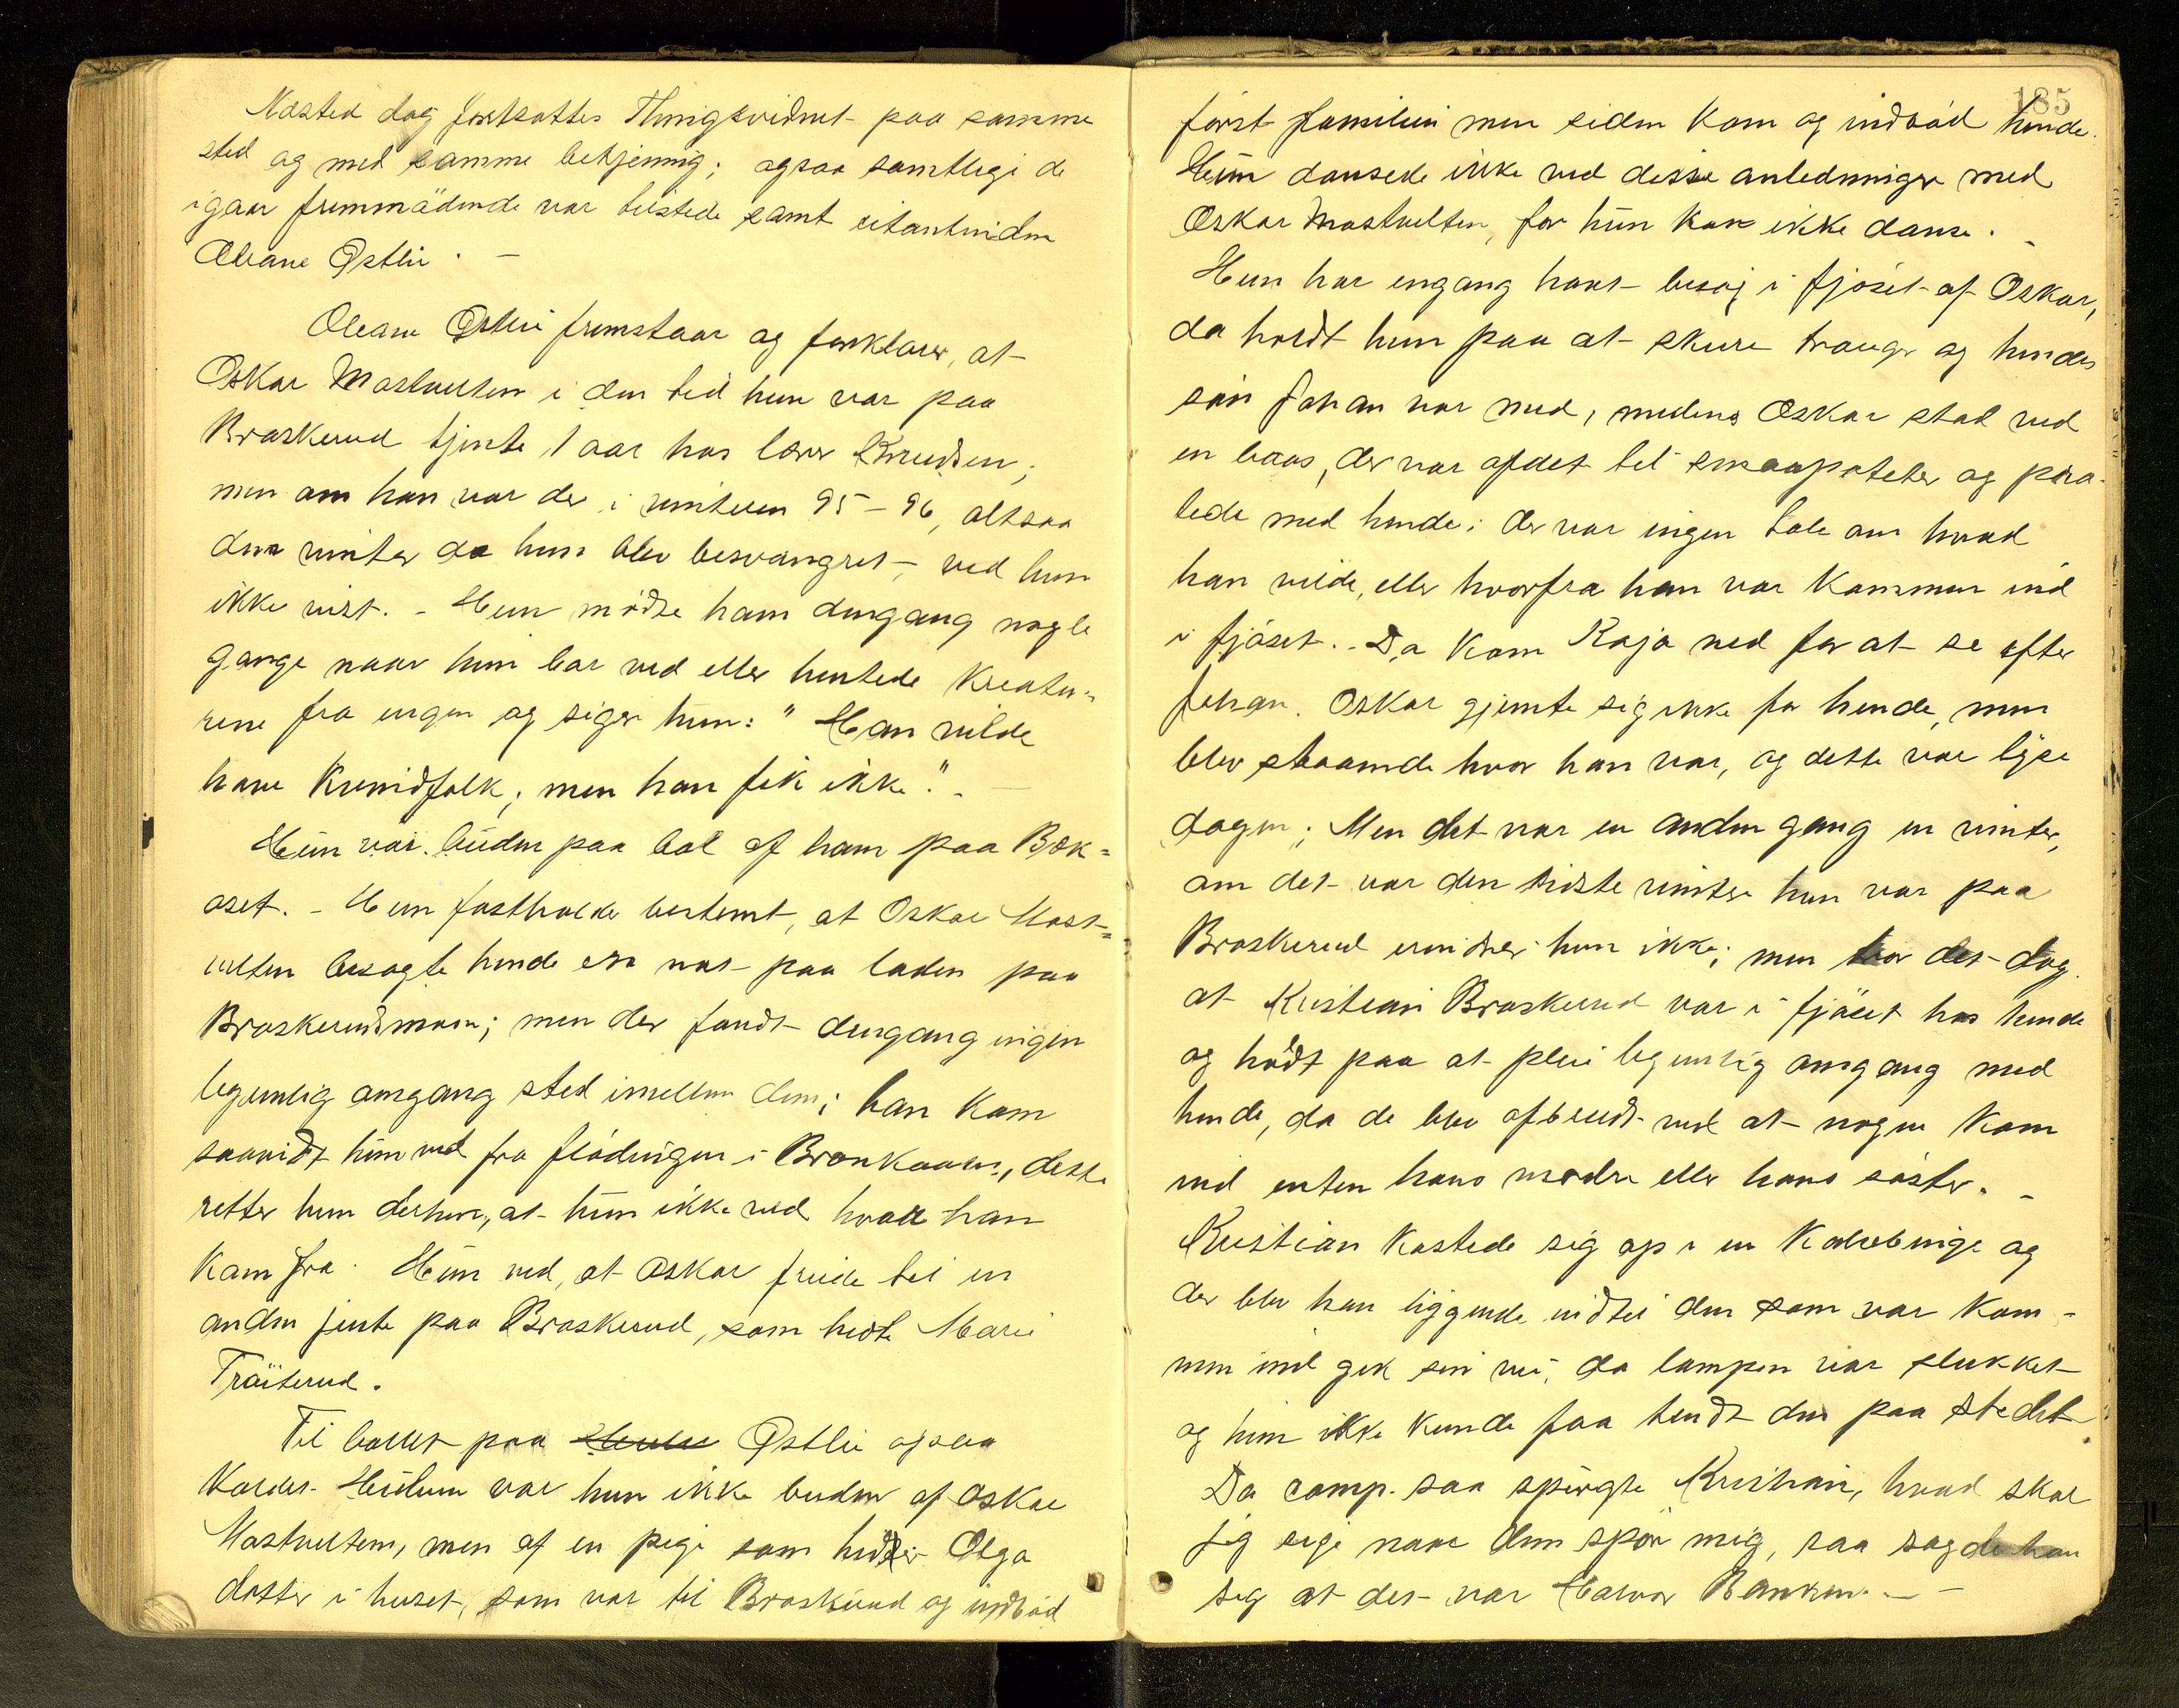 Næsted dag fortsattes Thingsvidnet paa samme
sted og med samme betjening; ogsaa samtlige de
igaar fremmødende var tilstede samt citantinden
Oleane Østlie. —
Oleane Østlie fremstaar og forklarer, at
Oskar Mastvelten i den tid hun var paa
Braskerud tjente 1 aar hos lærer Knudsen;
men om han var der i vinteren 95-96, altsaa
den vinter da hun blev besvangret, ved hun
ikke vist. - Hun mødte ham dengang nogle
gange naar hun bar ved eller hentede kreatu-
rene fra engen og siger hun: "Han vilde
have kvindfolk; men han fik ikke". -
Hun var buden paa bal af ham paa Bæk-
aset. - Hun fastholder bestemt, at Oskar Mast-
velten besøgte hende en nat paa laden paa
Braskerudmoen; men der fandt dengang ingen
legemlig omgang sted imellem dem; han kom
saavidt hun ved fra flødningen i Brankaaen, dette
retter hun derhen, at hun ikke ved hvor han
kom fra. Hun ved, at Oskar friede til en
anden jente paa Braskerud, som hedte Marie
Trøiterud.
Til ballet paa Østlie ogsaa
kaldet Hulum var hun ikke buden af Oskar
Mastvelten, men af en pige som heder Olga
datter i huset, som var til Braskerud og indbød
185
først familien men siden kom og indbød hende.
Hun dansede ikke ved disse anledninger med
Oskar Mastvelten, for hun kan ikke danse. -
Hun har engang havt besøg i fjøset af Oskar,
da holdt hun paa at skure trauger og hendes
søn Johan var med, medens Oskar stod ved
en baas, der var afdelt til smaapoteter og pra-
tede med hende; der var ingen tale om hvad
han vilde, eller hvorfra han var kommen ind
i fjøset. - Da kom Kaja ned for at se efter
Johan. Oskar gjemte sig ikke for hende, men
blev staaende hvor han var, og dette var lyse
dagen; Men det var en anden gang en vinter,
om det var den sidste vinter hun var paa
Braskerud erindrer hun ikke; men tror det dog
at Kristian Braskerud var i fjøset hos hende
og holdt paa at pleie legemlig omgang med
hende, da de blev afbrudt ved at nogen kom
ind enten hans moder eller hans søster. -
Kristian kastede sig op i en kalvebinge og
der blev han liggende indtil den som var kom-
men ind gik sin vei, da lampen var slukket
og hun ikke kunde faa tendt den paa stedet.
Da comp. saa spurgte Kristian, hvad skal
jeg sige naar dem spør mig, saa sagde han
sig at det var Halvor Banken. —